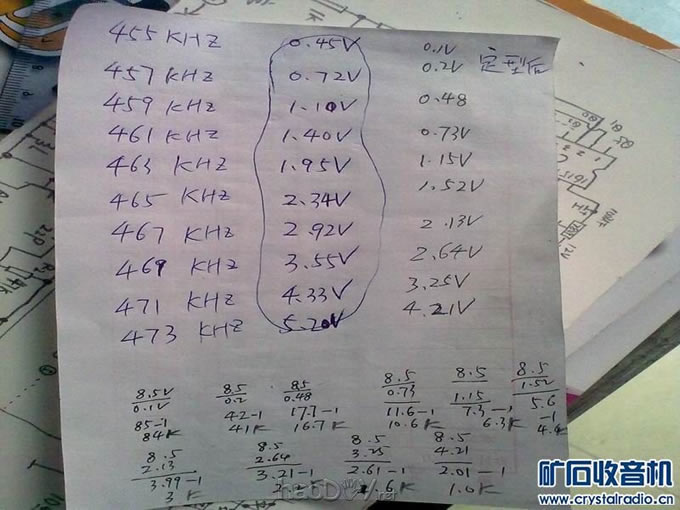 455 KHZ 0.45V 0.1V
457 KHZ 0.72V 0.2V 定型后
459 KHZ 1.10V 0.48
461 KHZ 1.40V 0.73V
463 KHZ 1.95V 1.15V
465 KHZ 2.34V 1.52V
467 KHZ 2.92V 2.13V
469 KHZ 3.55V 2.64V
471 KHZ 4.33V 3.25V
473 KHZ 5.20V 4.21V
8.5V 8.5 8.5 8.5 8.5 8.5
0.1V 0.2 0.48 0.73 1.15 1.52
85-1 42-1 17.7-1 11.6-1 7.3-1 5.6-1
84K 41K 16.7K 10.6K 6.3K 4.4
8.5 8.5 8.5 8.5
2.13 2.64 3.25 4.21
3.99-1 3.21-1 2.61-1 2.01-1
3K .6K 1.0K
矿石收音机
www.crystalradio.cn